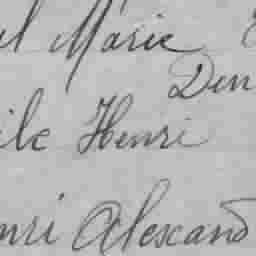 el Marie
Den
ile Henri
nri Alexand